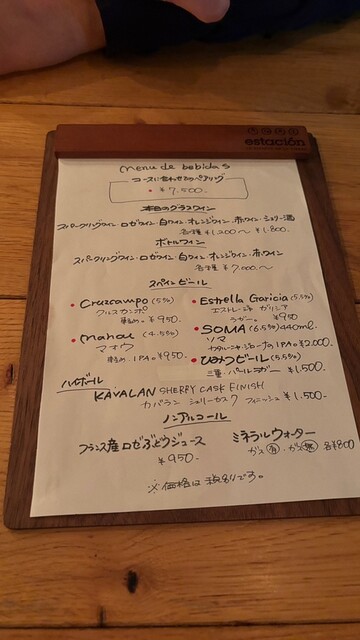 estación
menu de bebidas
コースに合わせるペアリング
• ¥7.500-
本日のグラスワイン
スパークリングワイン・ロゼワイン・白ワイン・オレンジワイン・赤ワイン・シェリー酒
各種 ¥1.200〜¥1.800.
ボトルワイン
スパークリングワイン・ロゼワイン・白ワイン・オレンジワイン・赤ワイン
各種 ¥7.000〜
スペインビール
• Cruzcampo (5%)
クルスカンポ
¥950.
• Mahou (4.5%)
マオウ
IPA ¥950.
• Estrella Garicia (5.5%)
エストレージャ ガリシア
ラガー。 ¥950
• SOMA (6.5%) 440ml.
ソマ
IPA ¥2.000.
• ひみつビール (5.5%)
三重・ ¥1.500
ハイボール
KAVALAN SHERRY CASK FINISH
カバラン シェリーカスク フィニッシュ ¥1,500-
ノンアルコール
フランス産ロゼぶどうジュース
¥950-
ミネラルウォーター
ガス有・ガス無 各¥800
※価格は税別です。